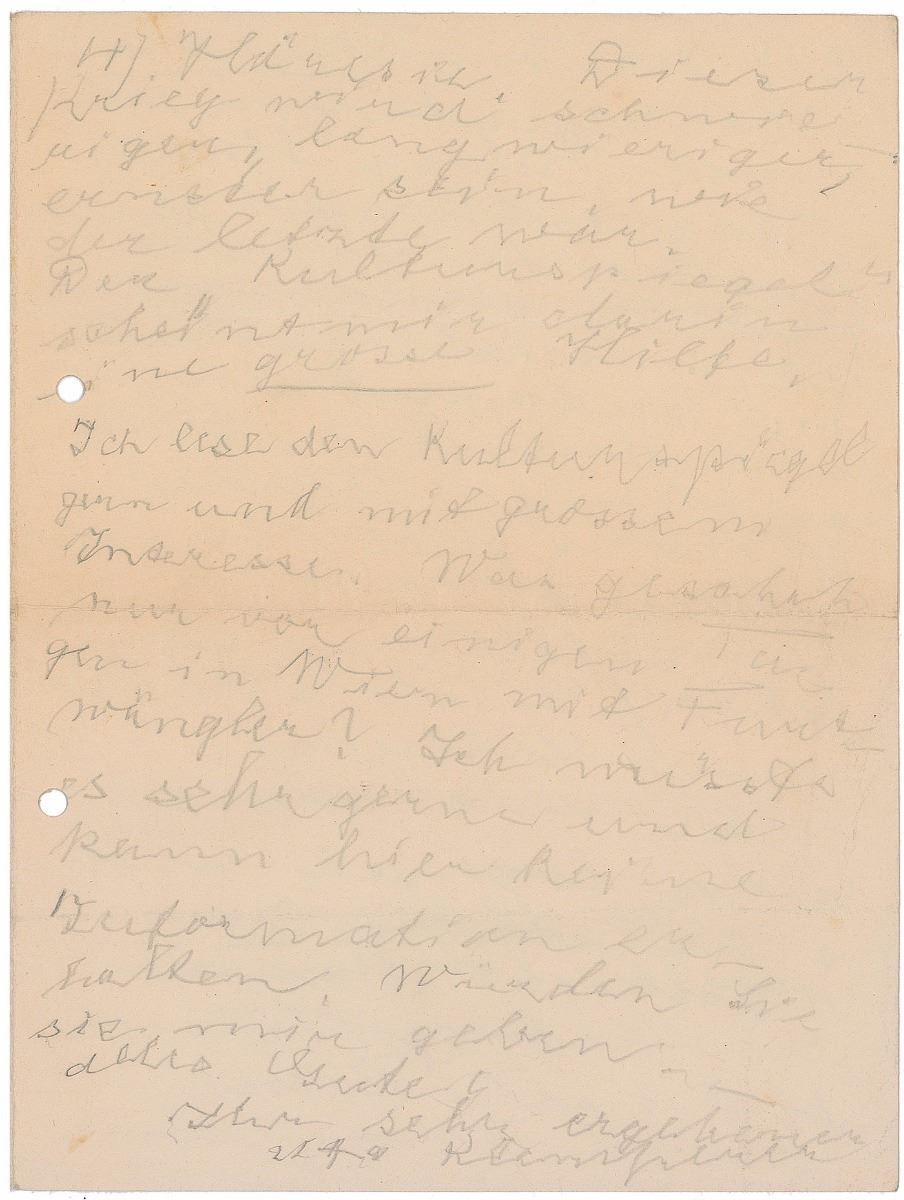 4) Dieser
Krieg wird schwie
riger, langwieriger,
ernster sein, wie
der letzte war.
Der „Kulturspiegel"
scheint mir darin
eine grosse Hilfe.
Ich lese den Kulturspiegel
gern und mit grossem
Interesse. Was geschah
nur vor einigen Ta
gen in Wien mit Furt
wängler? Ich wüsste
es sehr gerne und
kann hier keine
Information er-
halten. Würden Sie
sie mir geben.
Alles Gute!
Ihr sehr ergebener
Klemperer